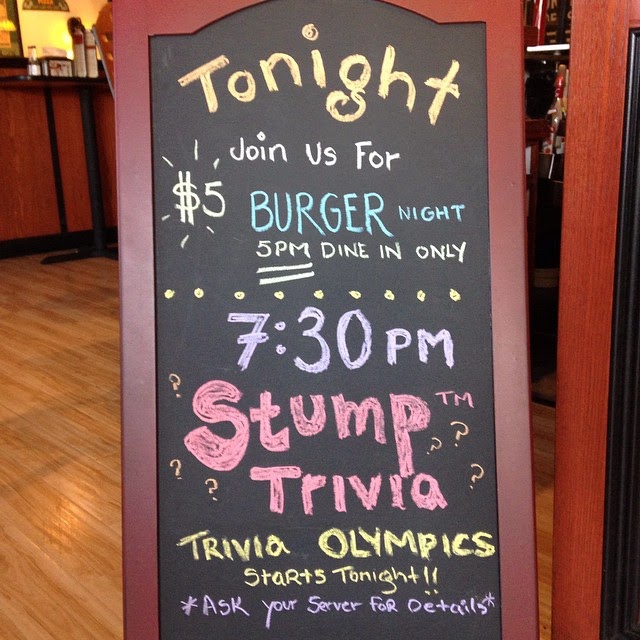 Tonight
Join Us For
$5 BURGER NIGHT
5PM DINE IN ONLY
7:30PM
Stump™
Trivia
TRIVIA OLYMPICS
Starts Tonight!!
*Ask your Server For Details*